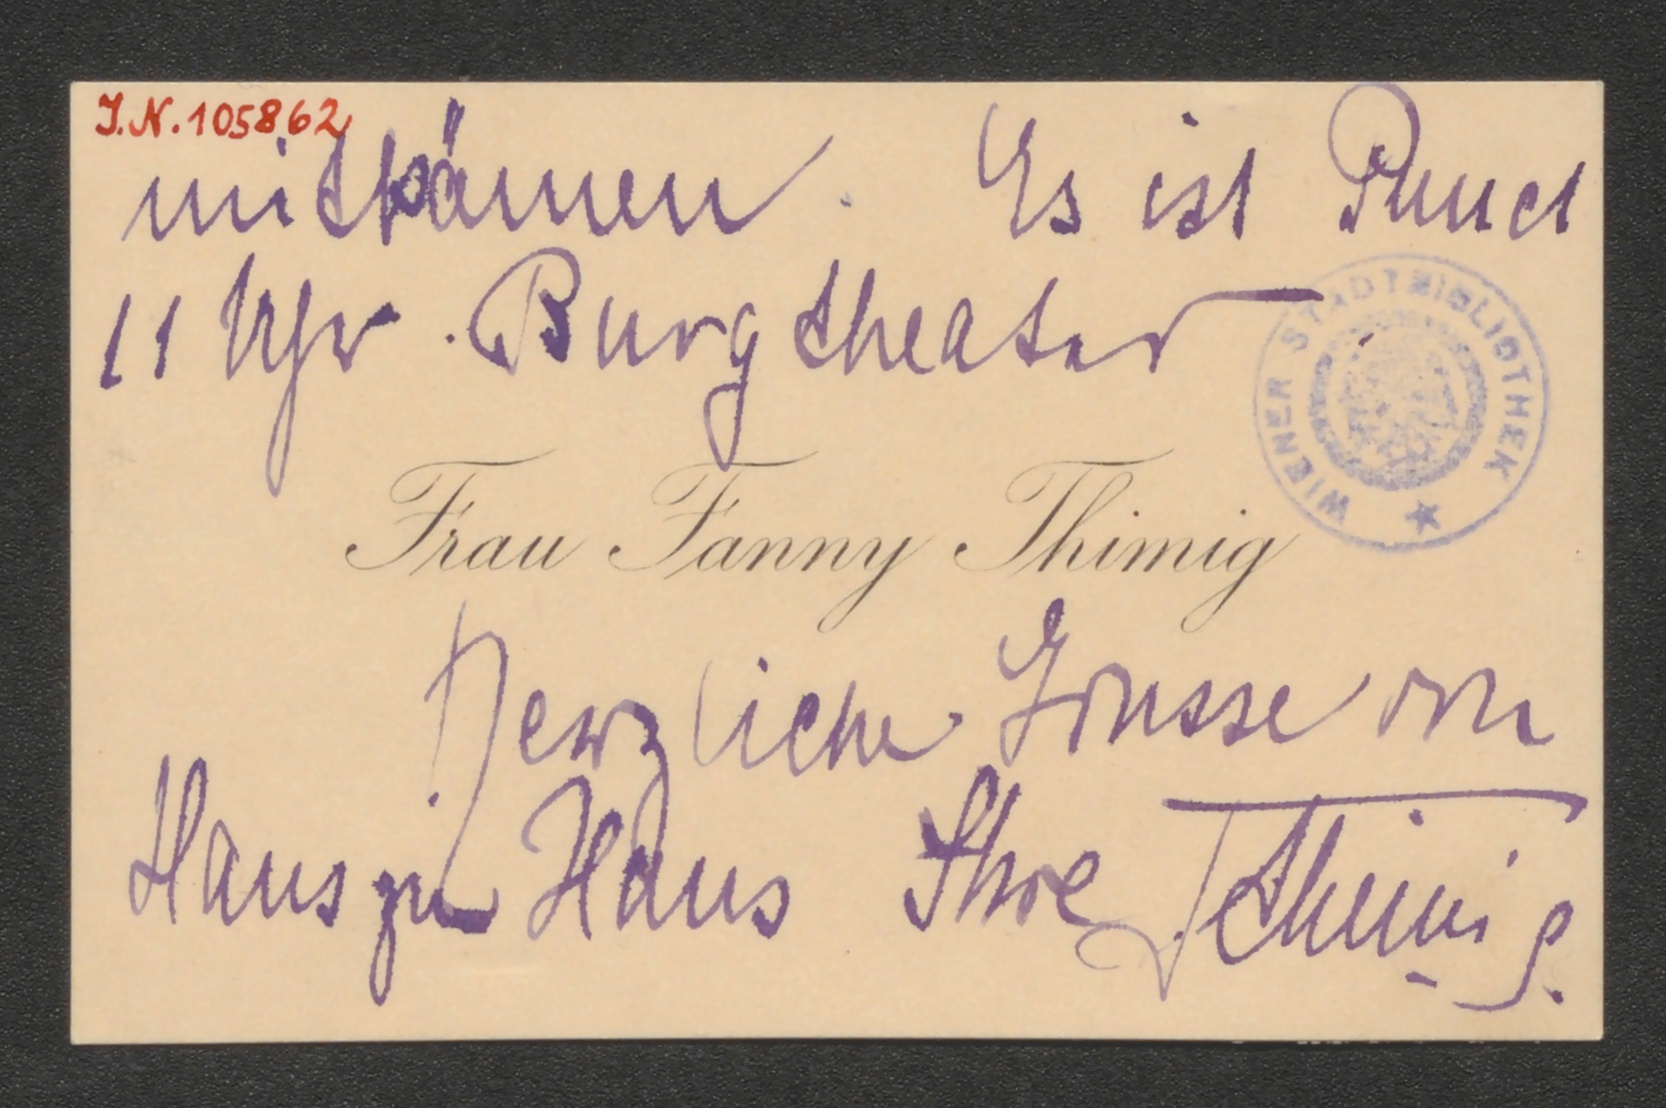 I.N. 105862
mitkämen. Es ist Punct
11 Uhr. Burgtheater
WIENER STADTBIBLIOTHEK
Frau Fanny Thimig
Herzliche Grüsse von
Haus zu Haus Ihre Thimig.